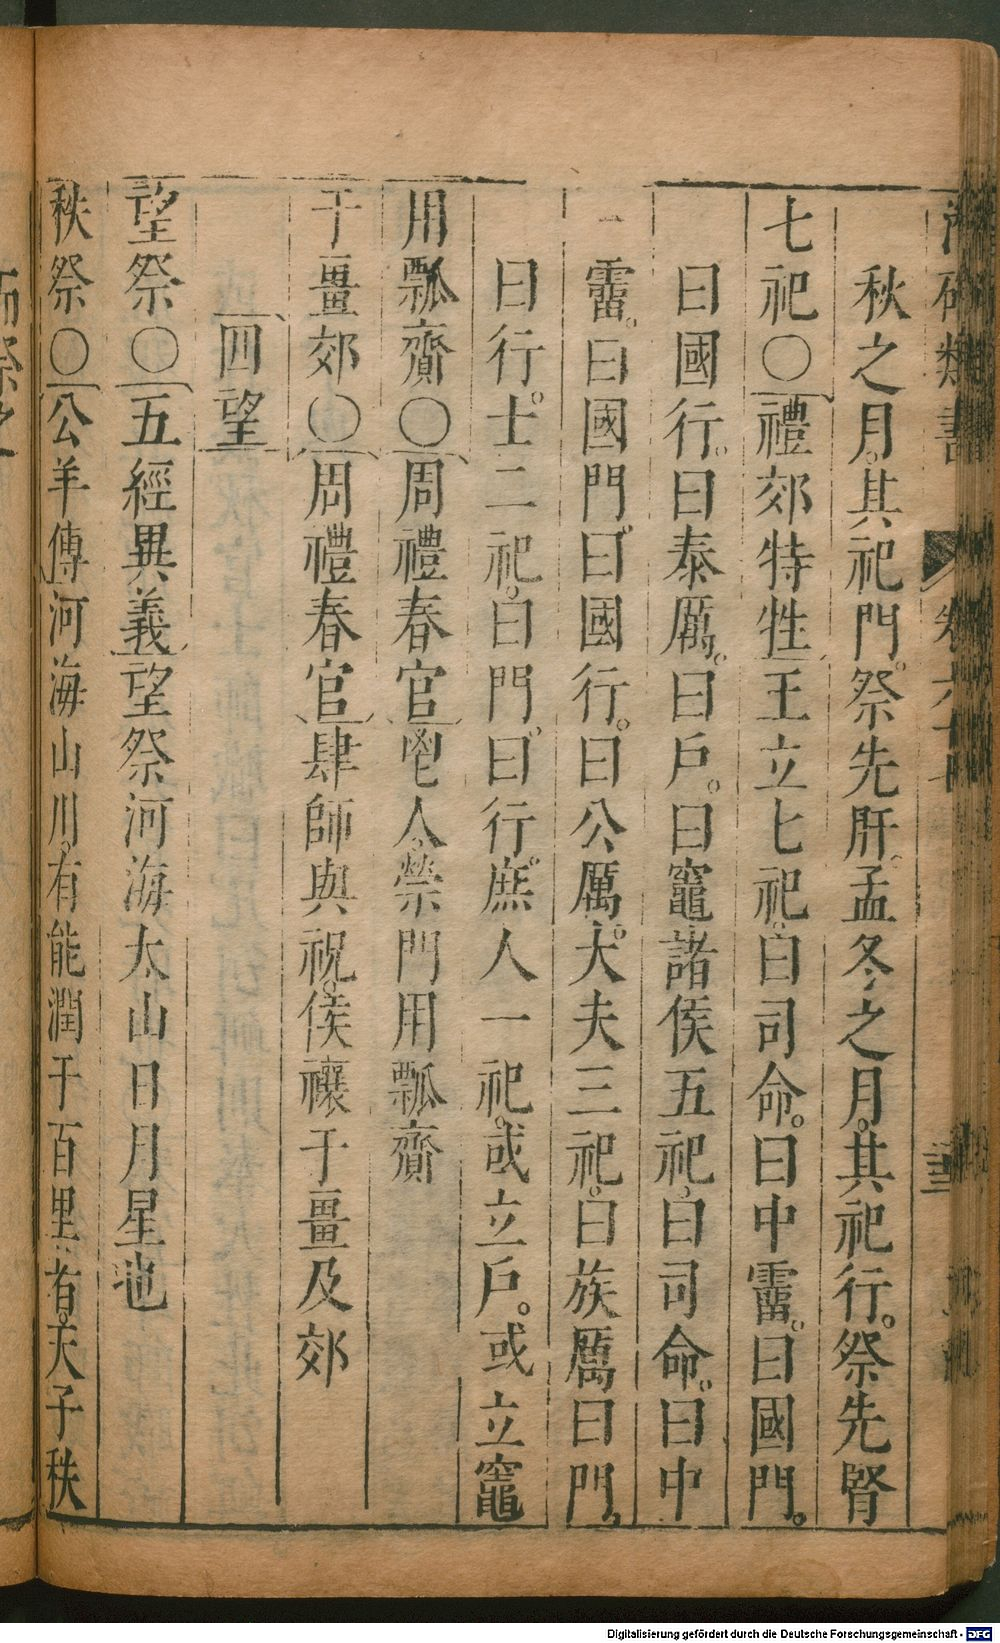 類書 卷六十
秋之月。其祀門。祭先肝。孟冬之月。其祀行。祭先腎
七祀〇禮郊特牲王立七祀。曰司命。曰中霤。曰國門。
曰國行。曰泰厲。曰戶。曰竈諸侯五祀。曰司命。曰中
霤。曰國門。曰國行。曰公厲。大夫三祀。曰族厲曰門。
曰行。士二祀。曰門。曰行。庶人一祀。或立戶。或立竈
用瓢齎〇周禮春官鬯人禜門用瓢齎
于畺郊〇周禮春官肆師與祝。侯禳于畺及郊
四望
望祭〇五經異義望祭河海太山日月星也
秩祭〇公羊傳河海山川。有能潤于百里者。天子秩
而祭之
Digitalisierung gefördert durch die Deutsche Forschungsgemeinschaft - DFG